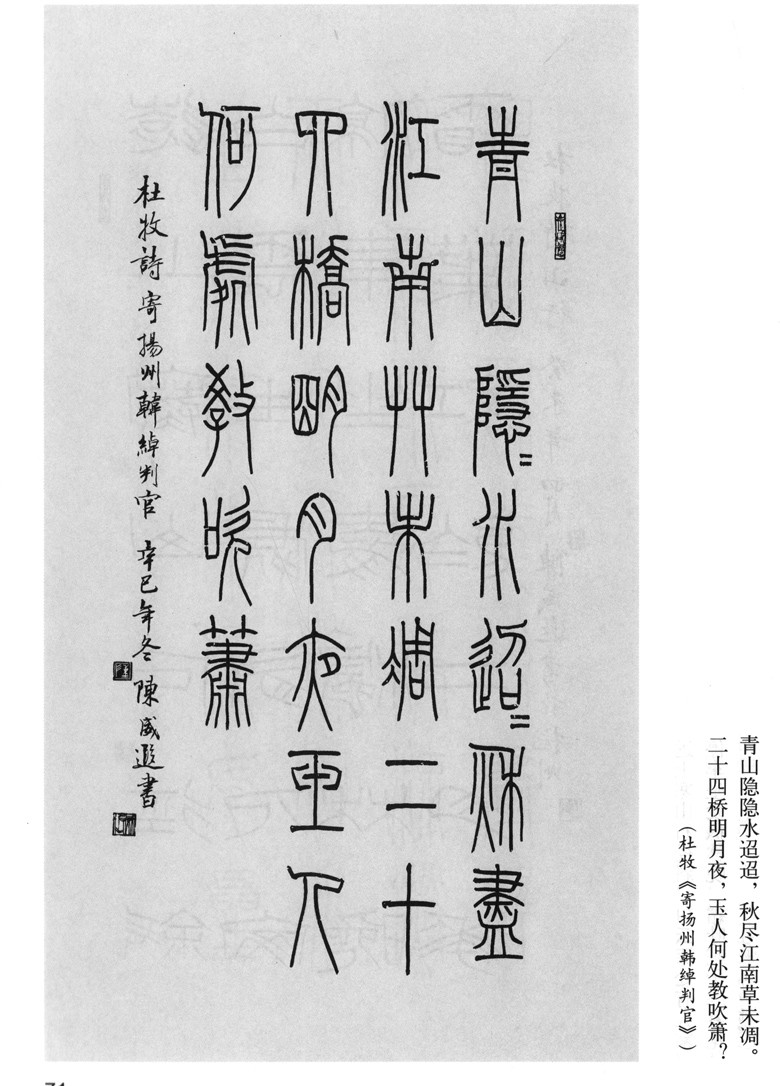 青山隱=水迢=秋盡
江南艸未凋二十
四橋明月夜玉人
何處教吹蕭
杜牧詩寄揚州韓綽判官 辛巳年冬 陳書
青山隐隐水迢迢，秋尽江南草未凋。
二十四桥明月夜，玉人何处教吹箫？
（杜牧《寄扬州韩绰判官》）